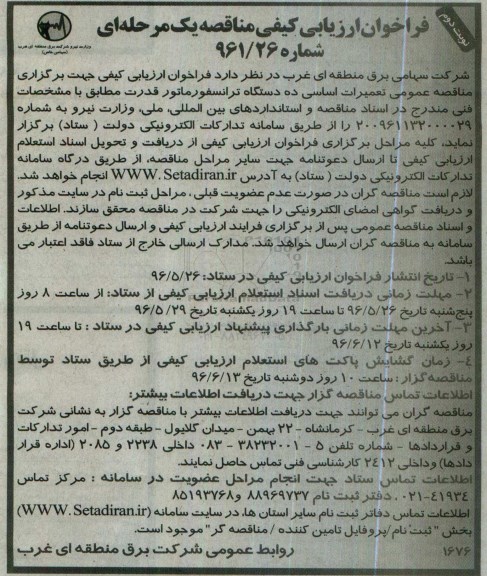 نوبت دوم
فراخوان ارزیابی کیفی مناقصه یک مرحله‌ای
شماره ۹۶۱/۲۶
وزارت نیرو شرکت برق منطقه ای غرب
(سهامی خاص)
شرکت سهامی برق منطقه ای غرب در نظر دارد فراخوان ارزیابی کیفی جهت برگزاری
مناقصه عمومی تعمیرات اساسی ده دستگاه ترانسفورماتور قدرت مطابق با مشخصات
فنی مندرج در اسناد مناقصه و استانداردهای بین المللی، ملی، وزارت نیرو به شماره
۲۰۰۹۶۱۱۳۲۰۰۰۰۲۹ را از طریق سامانه تدارکات الکترونیکی دولت ( ستاد) برگزار
نماید، کلیه مراحل برگزاری فراخوان ارزیابی کیفی از دریافت و تحویل اسناد استعلام
ارزیابی کیفی تا ارسال دعوتنامه جهت سایر مراحل مناقصه، از طریق درگاه سامانه
تدارکات الکترونیکی دولت ( ستاد) به آدرس WWW.Setadiran.ir انجام خواهد شد.
لازم است مناقصه گران در صورت عدم عضویت قبلی ، مراحل ثبت نام در سایت مذکور
و دریافت گواهی امضای الکترونیکی را جهت شرکت در مناقصه محقق سازند. اطلاعات
و اسناد مناقصه عمومی پس از برگزاری فرایند ارزیابی کیفی و ارسال دعوتنامه از طریق
سامانه به مناقصه گران ارسال خواهد شد. مدارک ارسالی خارج از ستاد فاقد اعتبار می
باشد.
۱- تاریخ انتشار فراخوان ارزیابی کیفی در ستاد: ۹۶/۵/۲۶
۲- مهلت زمانی دریافت اسناد استعلام ارزیابی کیفی از ستاد: از ساعت ۸ روز
پنج‌شنبه تاریخ ۹۶/۵/۲۶ تا ساعت ۱۹ روز یکشنبه تاریخ ۹۶/۵/۲۹
۳- آخرین مهلت زمانی بارگذاری پیشنهاد ارزیابی کیفی در ستاد : تا ساعت ۱۹
روز یکشنبه تاریخ ۹۶/۶/۱۲
۴- زمان گشایش پاکت های استعلام ارزیابی کیفی از طریق ستاد توسط
مناقصه‌گزار : ساعت ۱۰ روز دوشنبه تاریخ ۹۶/۶/۱۳
اطلاعات تماس مناقصه گزار جهت دریافت اطلاعات بیشتر:
مناقصه گران می توانند جهت دریافت اطلاعات بیشتر با مناقصه گزار به نشانی شرکت
برق منطقه ای غرب - کرمانشاه - ۲۲ بهمن - میدان گلایول - طبقه دوم - امور تدارکات
و قراردادها - شماره تلفن ۵ - ۳۸۲۳۲۰۰۱ - ۰۸۳ داخلی ۲۲۳۸ و ۲۰۸۵ (اداره قرار
دادها) وداخلی ۲۴۱۲ کارشناسی فنی تماس حاصل نمایند.
اطلاعات تماس ستاد جهت انجام مراحل عضویت در سامانه : مرکز تماس
۰۲۱-۴۱۹۳۴ . دفتر ثبت نام ۸۸۹۶۹۷۳۷ و ۸۵۱۹۳۷۶۸
اطلاعات تماس دفاتر ثبت نام سایر استان ها، در سایت سامانه (WWW.Setadiran.ir)
بخش "ثبت نام/پروفایل تامین کننده / مناقصه گر" موجود است.
روابط عمومی شرکت برق منطقه ای غرب
۱۶۷۶